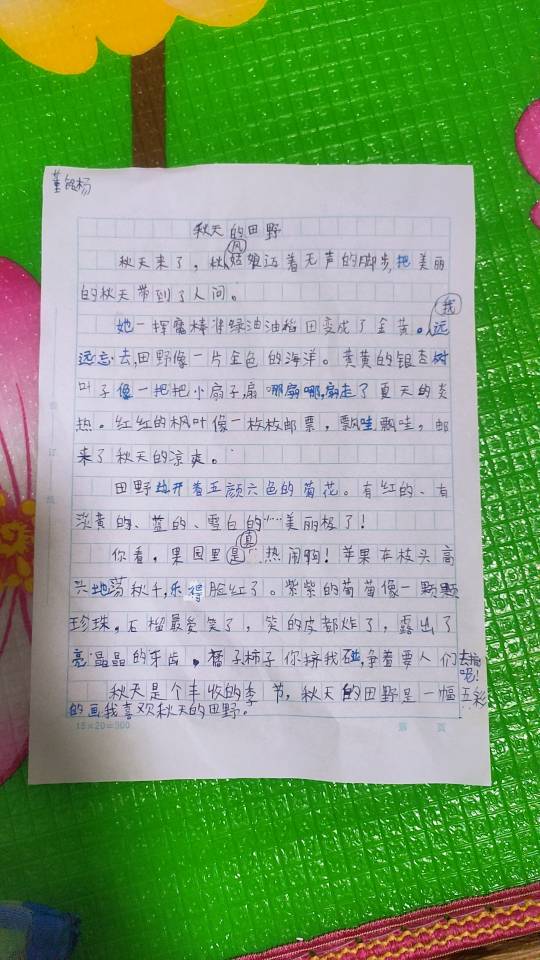 董铭杨
秋天的田野
秋天来了，秋风姑娘迈着无声的脚步，把美丽
的秋天带到了人间。
她一挥魔棒准绿油油稻田变成了金黄。我远
远忘去，田野像一片金色的海洋。黄黄的银杏树
叶子像一把把小扇子，扇哪扇哪，扇走了夏天的炎
热。红红的枫叶像一枚枚邮票，飘哇飘哇，邮
来了秋天的凉爽。
田野开着五颜六色的菊花。有红的、有
淡黄的、蓝的、雪白的……美丽极了！
你看，果园里是真热闹啊！苹果在枝头高
兴地荡秋千，乐得脸红了。紫紫的葡萄像一颗颗
珍珠。石榴最爱笑了，笑的皮都炸了，露出了
亮晶晶的牙齿。橘子柿子你挤我碰，争着要人们去摘
呢！
秋天是个丰收的季节，秋天的田野是一幅五彩
的画我喜欢秋天的田野。
15×20=300
第 页